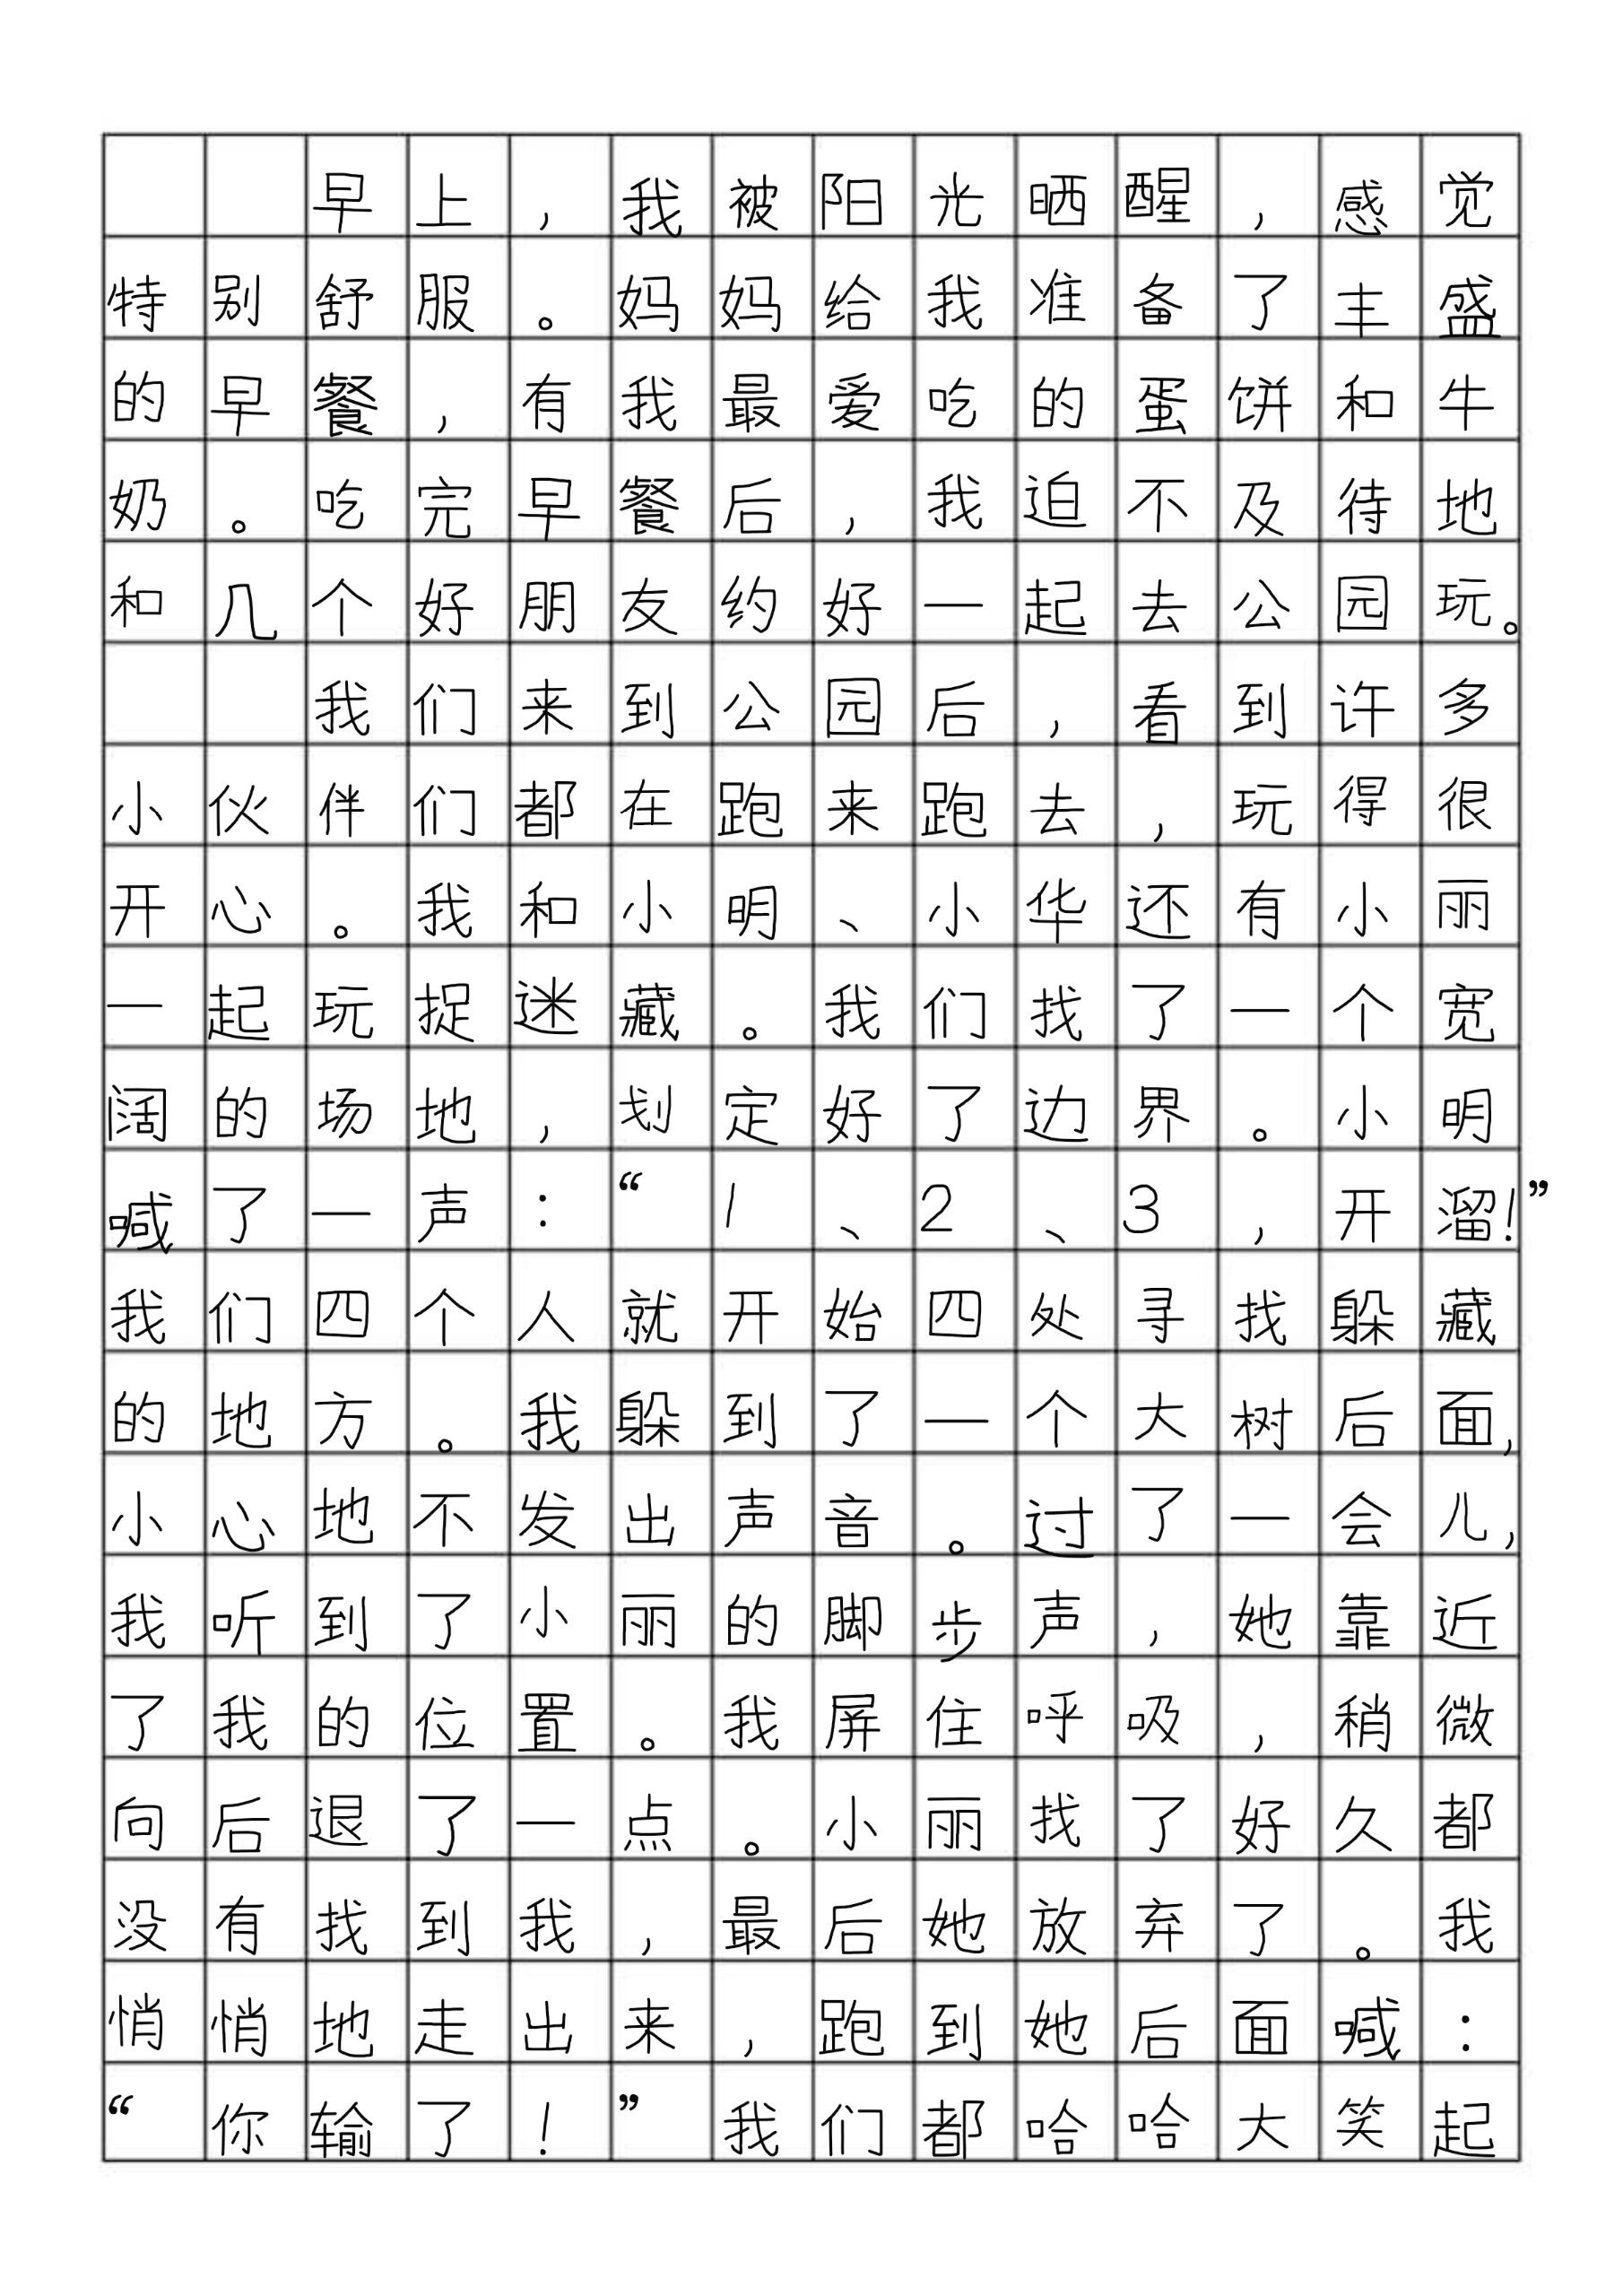 早上，我被阳光晒醒，感觉
特别舒服。妈妈给我准备了丰盛
的早餐，有我最爱吃的蛋饼和牛
奶。吃完早餐后，我迫不及待地
和几个好朋友约好一起去公园玩。
我们来到公园后，看到许多
小伙伴们都在跑来跑去，玩得很
开心。我和小明、小华还有小丽
一起玩捉迷藏。我们找了一个宽
阔的场地，划定好了边界。小明
喊了一声：“1、2、3，开溜！”
我们四个人就开始四处寻找躲藏
的地方。我躲到了一个大树后面，
小心地不发出声音。过了一会儿，
我听到了小丽的脚步声，她靠近
了我的位置。我屏住呼吸，稍微
向后退了一点。小丽找了好久都
没有找到我，最后她放弃了。我
悄悄地走出来，跑到她后面喊：
“你输了！”我们都哈哈大笑起